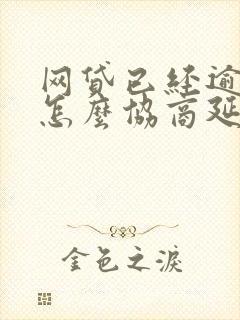 网贷已经逾
怎麽协商延
金色之淚